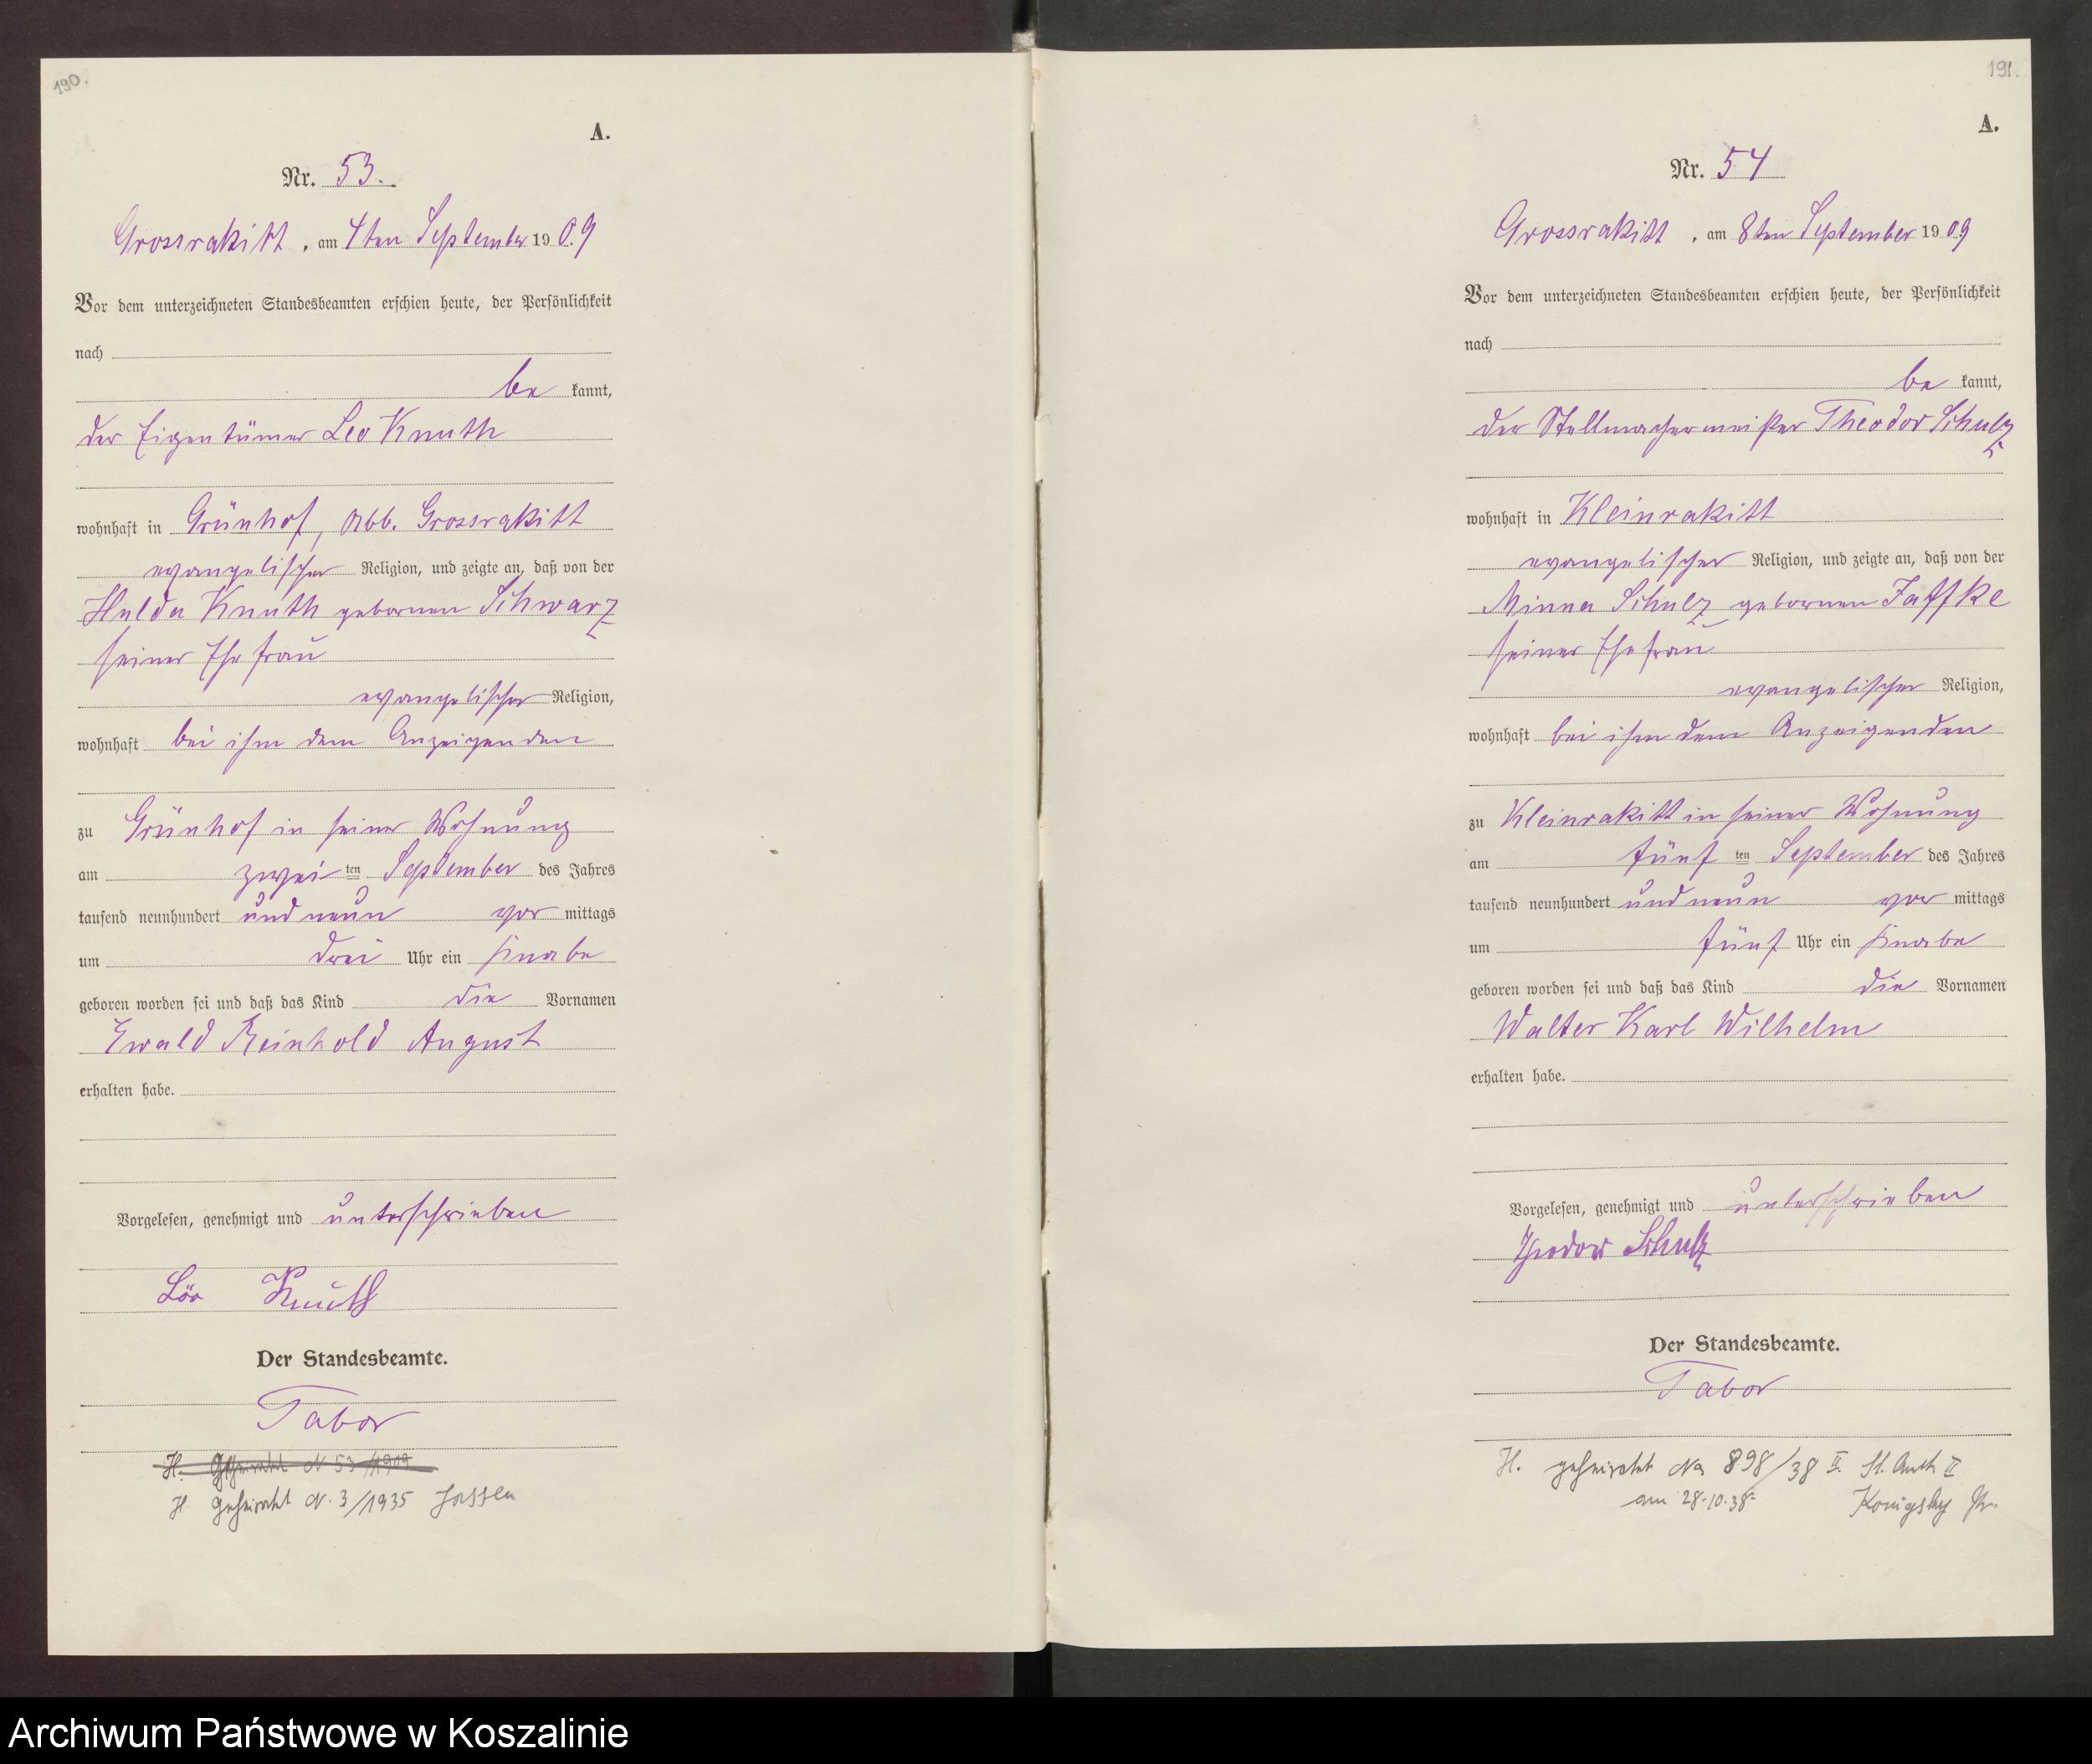 190.
A.
Nr. 53.
Grossrakitt, am 4ten September 1909
Vor dem unterzeichneten Standesbeamten erschien heute, der Persönlichkeit
nach
be kannt,
der Eigentümer Leo Knuth
wohnhaft in Grünhof, Abb. Grossrakitt
evangelischer Religion, und zeigte an, daß von der
Hulda Knuth gebornen Schwarz
seiner Ehefrau
evangelischer Religion,
wohnhaft bei ihm dem Anzeigenden
zu Grünhof in seiner Wohnung
am zwei ten September des Jahres
tausend neunhundert und neun vor mittags
um drei Uhr ein Knabe
geboren worden sei und daß das Kind die Vornamen
Ewald Reinhold August
erhalten habe.
Vorgelesen, genehmigt und unterschrieben
Leo Knuth
Der Standesbeamte.
Tabor
H. Geheiratet N 53/1909
H geheiratet N. 3/1935 Jassen
191.
A.
Nr. 54
Grossrakitt, am 8ten September 1909
Vor dem unterzeichneten Standesbeamten erschien heute, der Persönlichkeit
nach
be kannt,
der Stellmachermeister Theodor Schulz
wohnhaft in Kleinrakitt
evangelischer Religion, und zeigte an, daß von der
Minna Schulz gebornen Jaffke
seiner Ehefrau
evangelischer Religion,
wohnhaft bei ihm dem Anzeigenden
zu Kleinrakitt in seiner Wohnung
am fünf ten September des Jahres
tausend neunhundert und neun vor mittags
um fünf Uhr ein Knabe
geboren worden sei und daß das Kind die Vornamen
Walter Karl Wilhelm
erhalten habe.
Vorgelesen, genehmigt und unterschrieben
Theodor Schulz
Der Standesbeamte.
Tabor
H. geheiratet No 898/38 II. St. Amth II
am 28.10.38 Königsbg Pr.
Archiwum Państwowe w Koszalinie